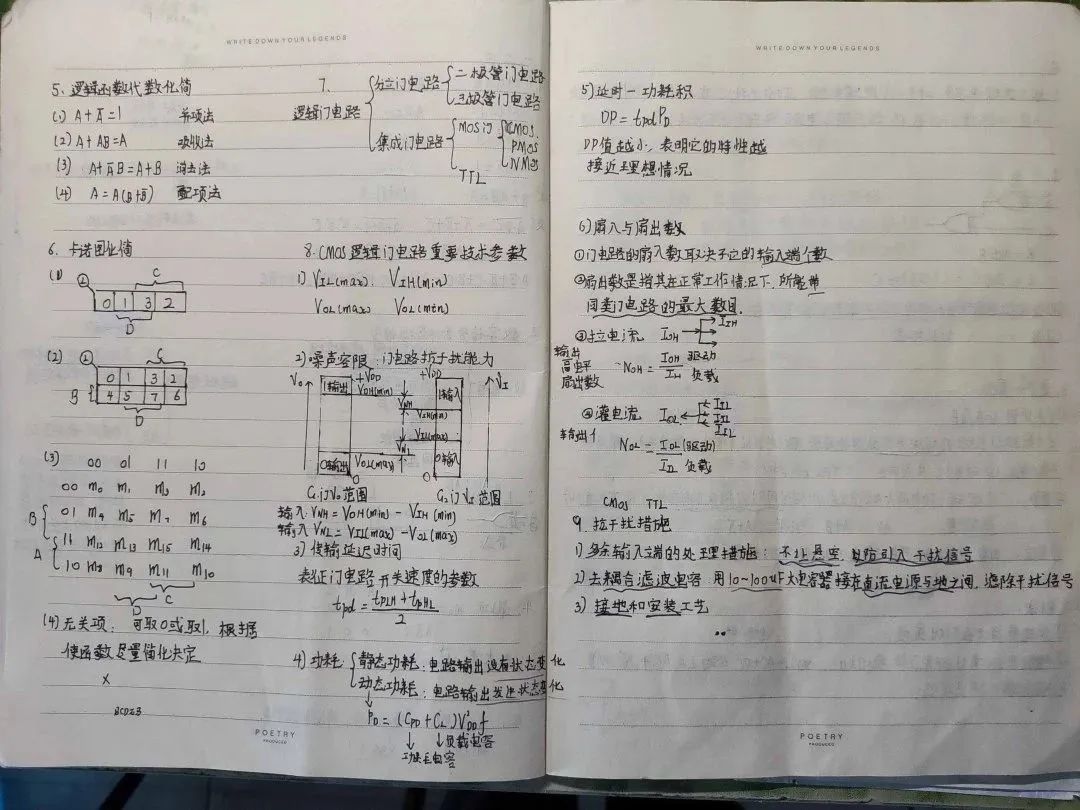 WRITE DOWN YOUR LEGENDS
5. 逻辑函数代数化简
(1) A+Ā=1 并项法
(2) A+AB=A 吸收法
(3) A+ĀB=A+B 消去法
(4) A=A(B+B̄) 配项法
6. 卡诺图化简
(1)
C
0 1 3 2
D
(2)
C
0 1 3 2
B 4 5 7 6
D
(3) 00 01 11 10
00 m₀ m₁ m₃ m₂
01 m₄ m₅ m₇ m₆
11 m₁₂ m₁₃ m₁₅ m₁₄
10 m₈ m₉ m₁₁ m₁₀
B
A
D C
(4) 无关项: 可取0或取1, 根据
使函数尽量简化决定
×
7.
逻辑门电路
分立门电路
二极管门电路
三极管门电路
集成门电路
MOS门
CMOS.
PMOS
NMOS
TTL
8. CMOS逻辑门电路重要技术参数
1) VIL(max). VIH(min)
VOL(max) VOL(min)
2) 噪声容限: 门电路抗干扰能力
Vo +VDD +VDD VI
1输出 VOH(min) 1输入
VNH
VIH(min)
VIL(max)
VNL
0输出 VOL(max) 0输入
0 0
G₁门Vo范围 G₂门VI范围
输入: VNH = VOH(min) - VIH(min)
输入VNL = VIL(max) - VOL(max)
3) 传输延迟时间
表征门电路开关速度的参数
tpd = (tpLH + tpHL)/2
4) 功耗
静态功耗: 电路输出没有状态变化
动态功耗: 电路输出发生状态变化
PD = (CPD + CL)V²DD f
负载电容
功耗电容
POETRY
PRODUCED
WRITE DOWN YOUR LEGENDS
5) 延时一功耗积
DP = tpd PD
DP值越小, 表明它的特性越
接近理想情况
6) 扇入与扇出数
①门电路的扇入数取决于它的输入端个数
②扇出数是指其在正常工作情况下, 所能带
同类门电路的最大数目.
③拉电流 IOH IIH
输出
高电平
扇出数
NOH = IOH 驱动 / IIH 负载
④灌电流 IOL IIL
IIL
IIL
NOL = IOL(驱动) / IIL 负载
CMOS TTL
9. 抗干扰措施
1) 多余输入端的处理措施: 不让悬空, 以防引入干扰信号
2) 去耦合滤波电容: 用10~100uF大电容器接在直流电源与地之间, 滤除干扰信号
3) 接地和安装工艺
POETRY
PRODUCED